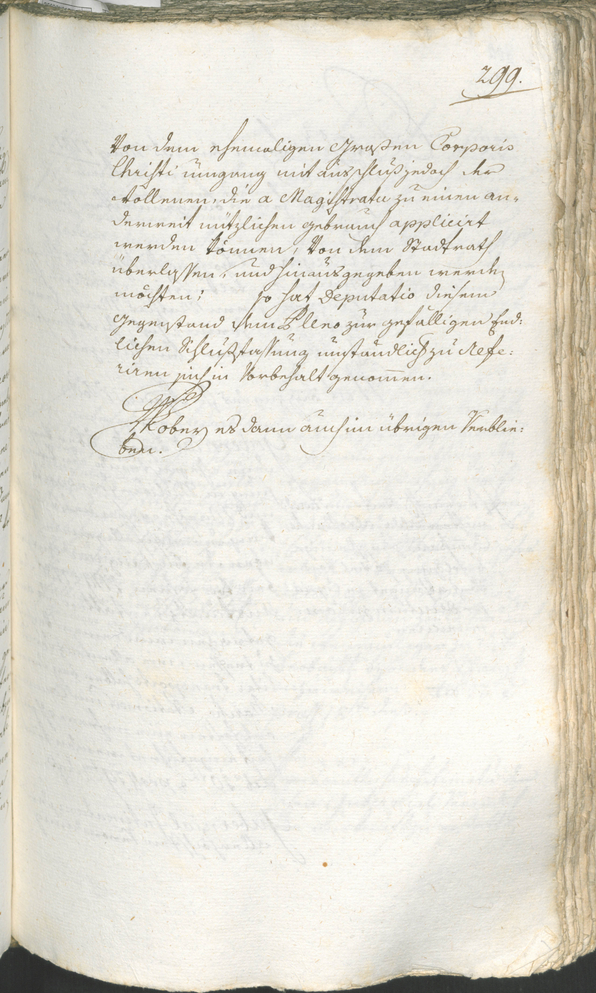 299.
Von dem ehemaligen Grossen Corporis
Christi umgang mit ausschluß jedoch der
die a Magistratu zu einen an-
derweit nützlichen gebrauch applicirt
werden können, Von dem Stadtrath
überlassen, und hinausgegeben werden
möchten; so hat Deputatio diesem
Gegenstand dem Pleno zur gefälligen End-
lichen Schlußfassung umständlich zu Refe-
riren sich in Vorbehalt genommen.
Wobey es dann auch im übrigen Verblie-
ben.